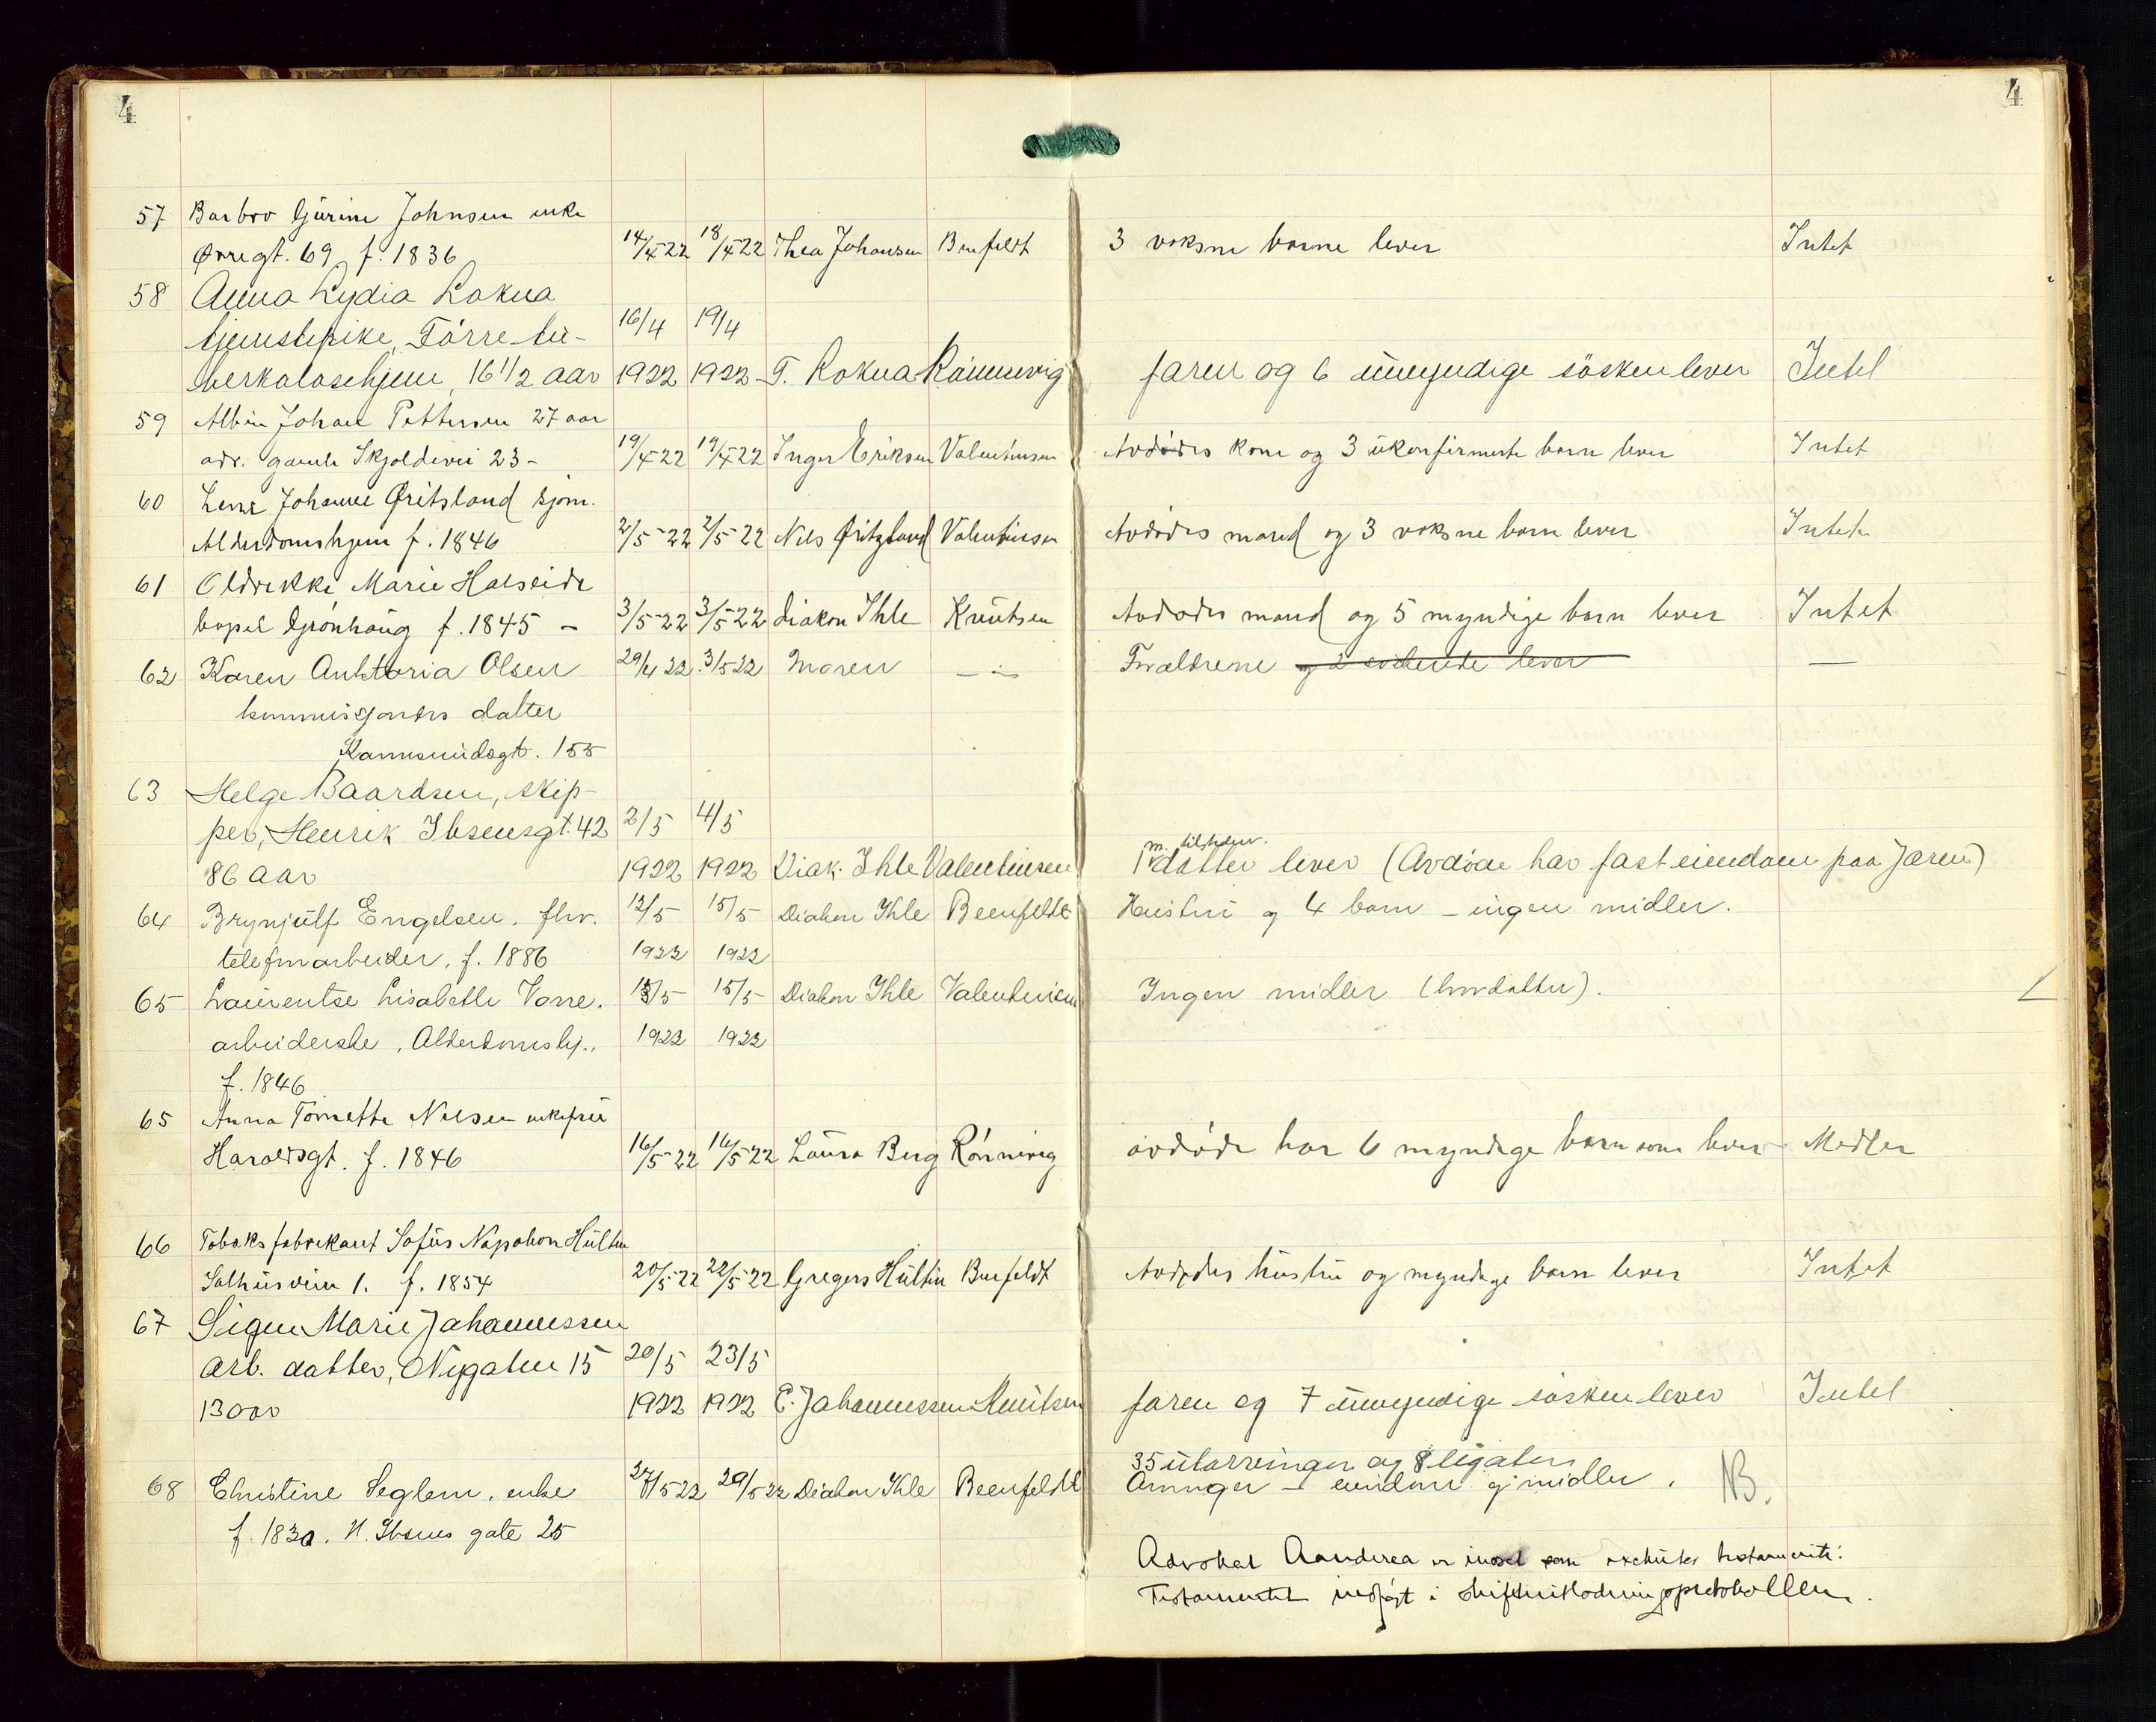 4
4
57 Barbro Gurine Johnsen enke
Ørregt. 69, f. 1836 14/4-22 18/4-22 Thea Johansen Beenfeldt 3 voksne barne lever Intet
58 Anna Lydia Lokna
tjenstepike, Førre tu- 16/4 19/4
berkulosehjem, 16 1/2 aar 1922 1922 T. Lokna Rönnevig faren og 6 umyndige søsken lever Intet
59 Albin Johan Pettersen 27 aar
adr. gamle Skjoldevei 23- 19/4-22 19/4-22 Inger Eriksen Valentinsen Avdødes kone og 3 ukonfirmerte barn lever Intet
60 Lene Johanne Gritsland sjøm.
Alderdomshjem f. 1846 2/5-22 2/5-22 Nils Gritsland Valentinsen Avdødes mand og 3 voksne barn lever Intet
61 Oldrekke Marie Halseide
bopel Grönhaug f. 1845 - 3/5-22 3/5-22 diakon Ihle Knutsen Avdødes mand og 5 myndige barn lever Intet
62 Karen Antoria Olsen 29/4 22 3/5 22 Moren — " — Forældrene —
kommisjonærs datter
Karmsundsgt. 155
63 Helge Baardsen, skip-
per, Henrik Ibsensgt. 42 2/5 4/5
86 aar 1922 1922 Diak. Ihle Valentinsen 1 datter lever (Avdøde har fast eiendom paa Jæren)
64 Brynjulf Engelsen, fhv. 12/5 15/5 Diakon Ihle Beenfeldt Hustru og 4 barn - ingen midler.
telefonarbeider, f. 1886 1922 1922
65 Laurentse Lisabette Vorre. 13/5 15/5 Diakon Ihle Valentinsen Ingen midler
arbeiderske, Alderdomshj., 1922 1922
f. 1846
65 Anna Tomette Nilsen enkefru
Haraldsgt. f. 1846 16/5-22 16/5-22 Laura Berg Rönnevig avdøde har 6 myndige barn som lever Midler
66 Tobaksfabrikant Sofus Napoleon Hultin
Salhusveien 1. f. 1854 20/5-22 22/5-22 Gregers Hultin Beenfeldt Avdødes hustru og myndige barn lever Intet
67 Signe Marie Johannessen
arb. datter, Nygaten 15 20/5 23/5
13 aar 1922 1922 E. Johannessen Knutsen faren og 7 umyndige søsken lever Intet
35 utarvinger og 8 legater
68 Christine Seglem, enke 27/5 22 29/5 22 Diakon Ihle Beenfeldt Arvinger - eiendom og midler. NB.
f. 1830. H. Ibsens gate 25
Advokat Aanderaa er indsat som exekutor testamenti.
Testamentet indført i skifteutlodningsprotokollen.